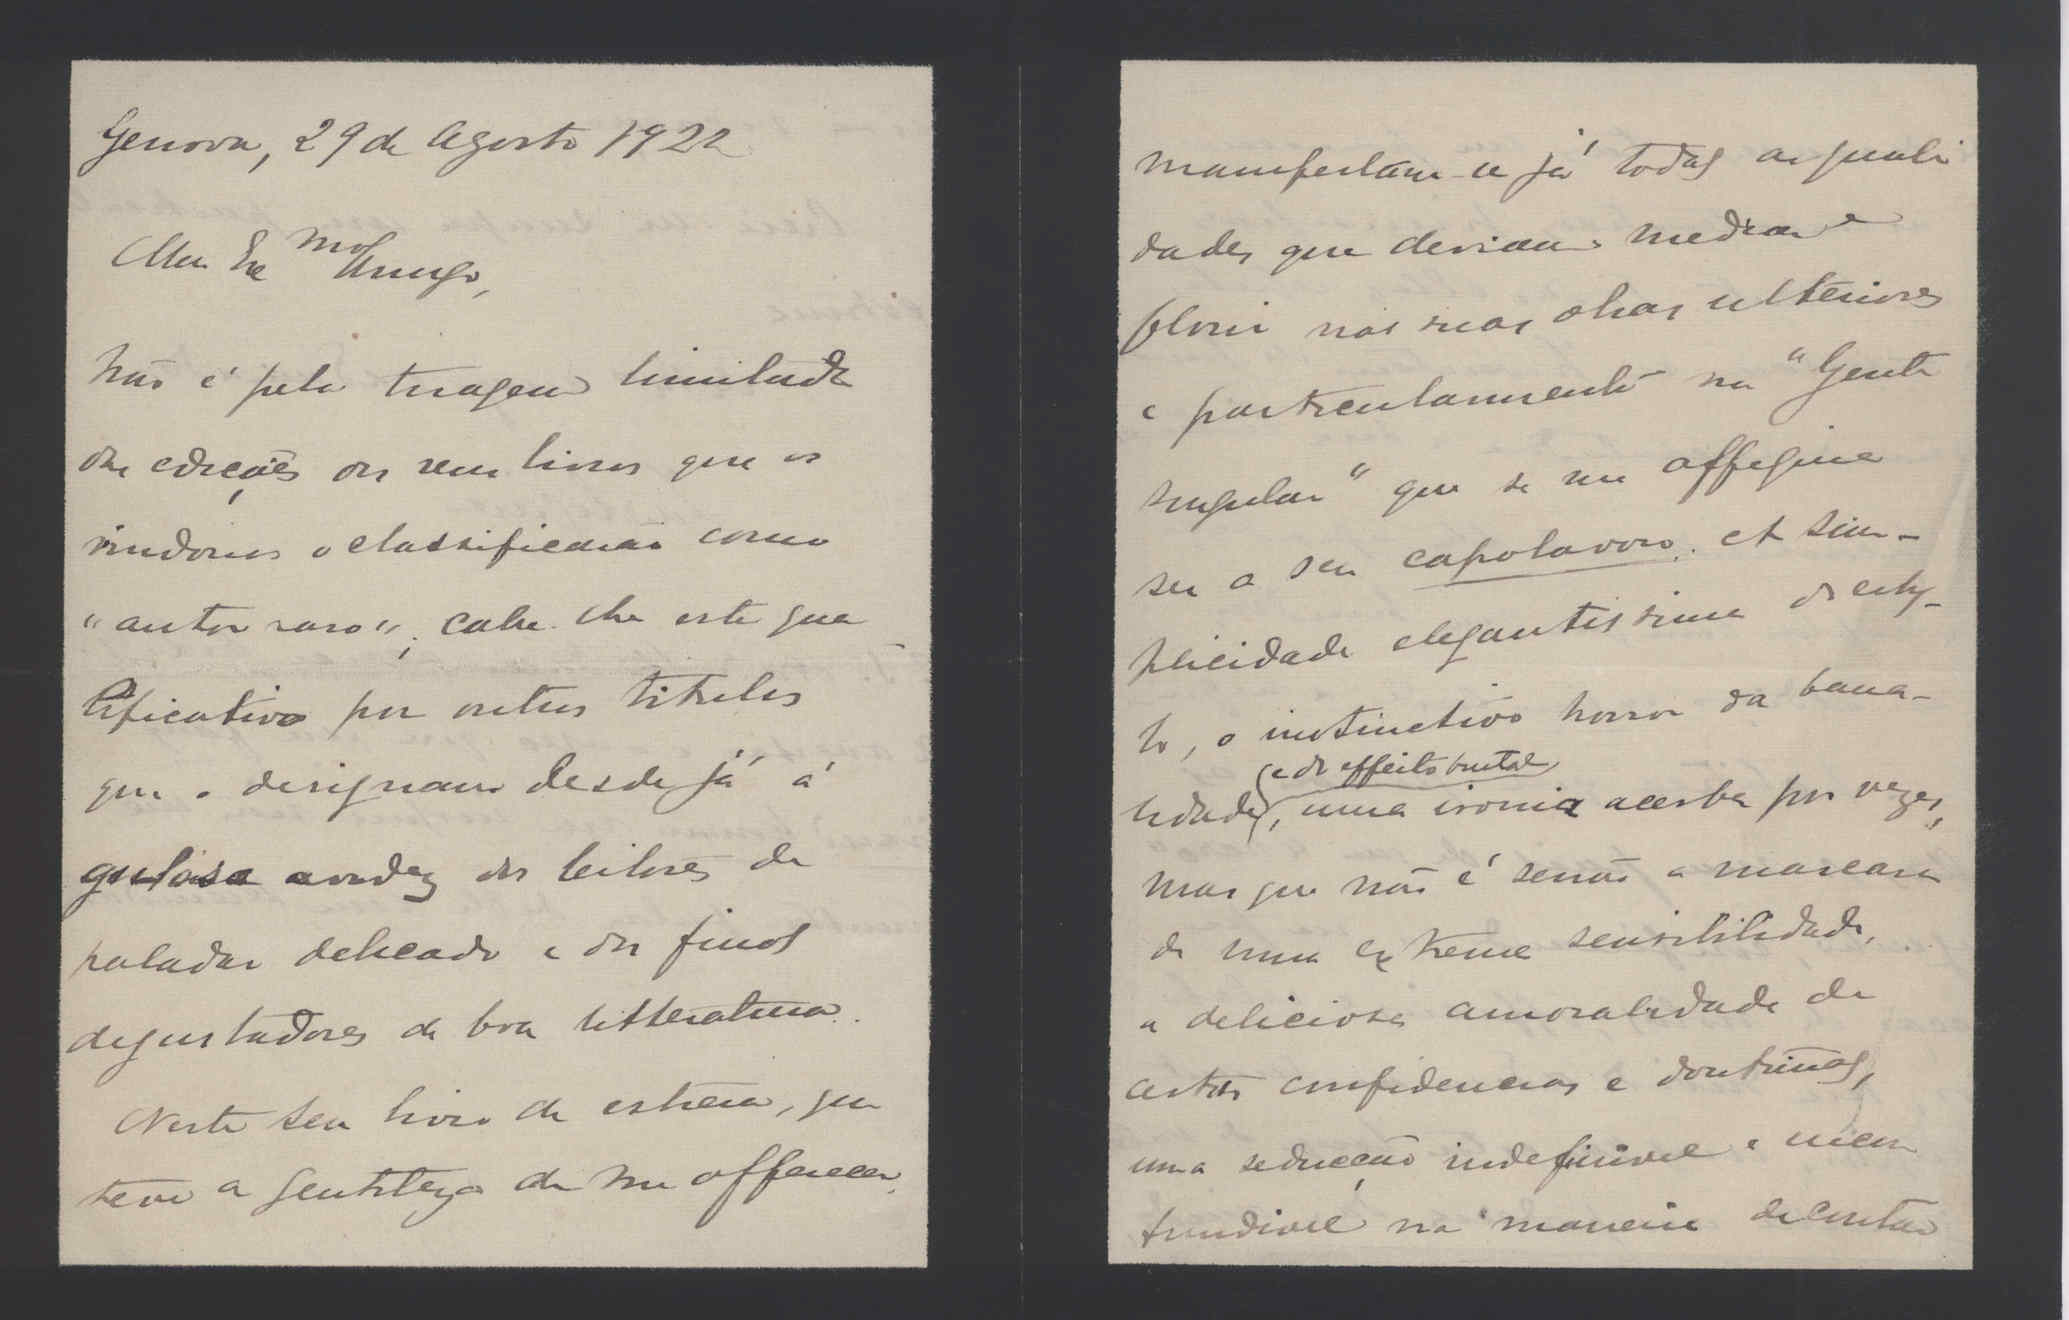 Genova, 29 de Agosto 1922
Meu Ex.mo Amigo,
Não é pela tiragem limitada
das edições dos seus livros que os
vindouros o classificarão como
"autor raro"; cabe-lhe este qua
lificativo por outros titulos
que o designam desde já á
gulosa avidez dos leitores de
paladar delicado e dos finos
degustadores da boa litteratura.
Neste seu livro de estreia, que
teve a gentileza de me offerecer,
manifestam-se já todas as quali
dades que deviam medrar e
florir nas suas obras ulteriores
e particularmente na "Gente
singular" que se me affigura
ser o seu capolavoro. A sim-
plicidade elegantissima do esty-
lo, o instinctivo horror da bana-
lidade, e do effeito brutal, uma ironia acerba por vezes,
mas que não é senão a mascara
de uma extrema sensibilidade,
a deliciosa amoralidade de
certas confidencias e doutrinas,
uma seducção indefinivel e incon
fundivel na maneira de contar